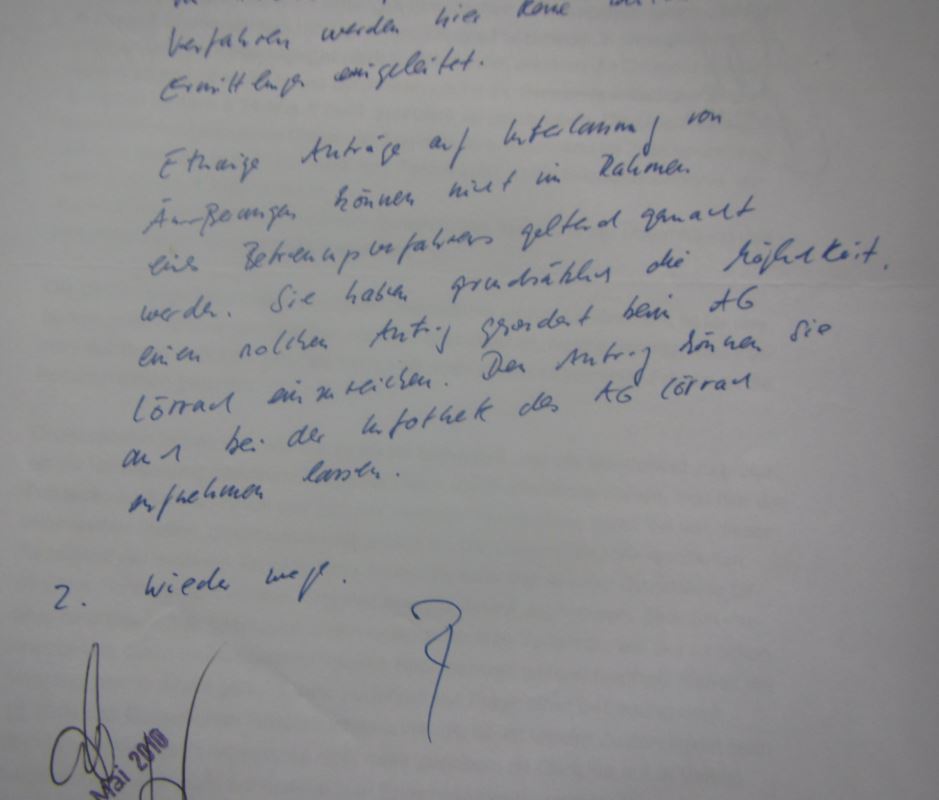 Verfahren werden hier keine
Ermittlungen eingeleitet.
Etwaige Anträge auf Unterlassung von
Äußerungen können nicht im Rahmen
eines Betreuungsverfahrens geltend gemacht
werden. Sie haben grundsätzlich die Möglichkeit,
einen solchen Antrag gesondert beim AG
Lörrach einzureichen. Den Antrag können Sie
auch bei der Infothek des AG Lörrach
aufnehmen lassen.
2. Wieder
Mai 2010